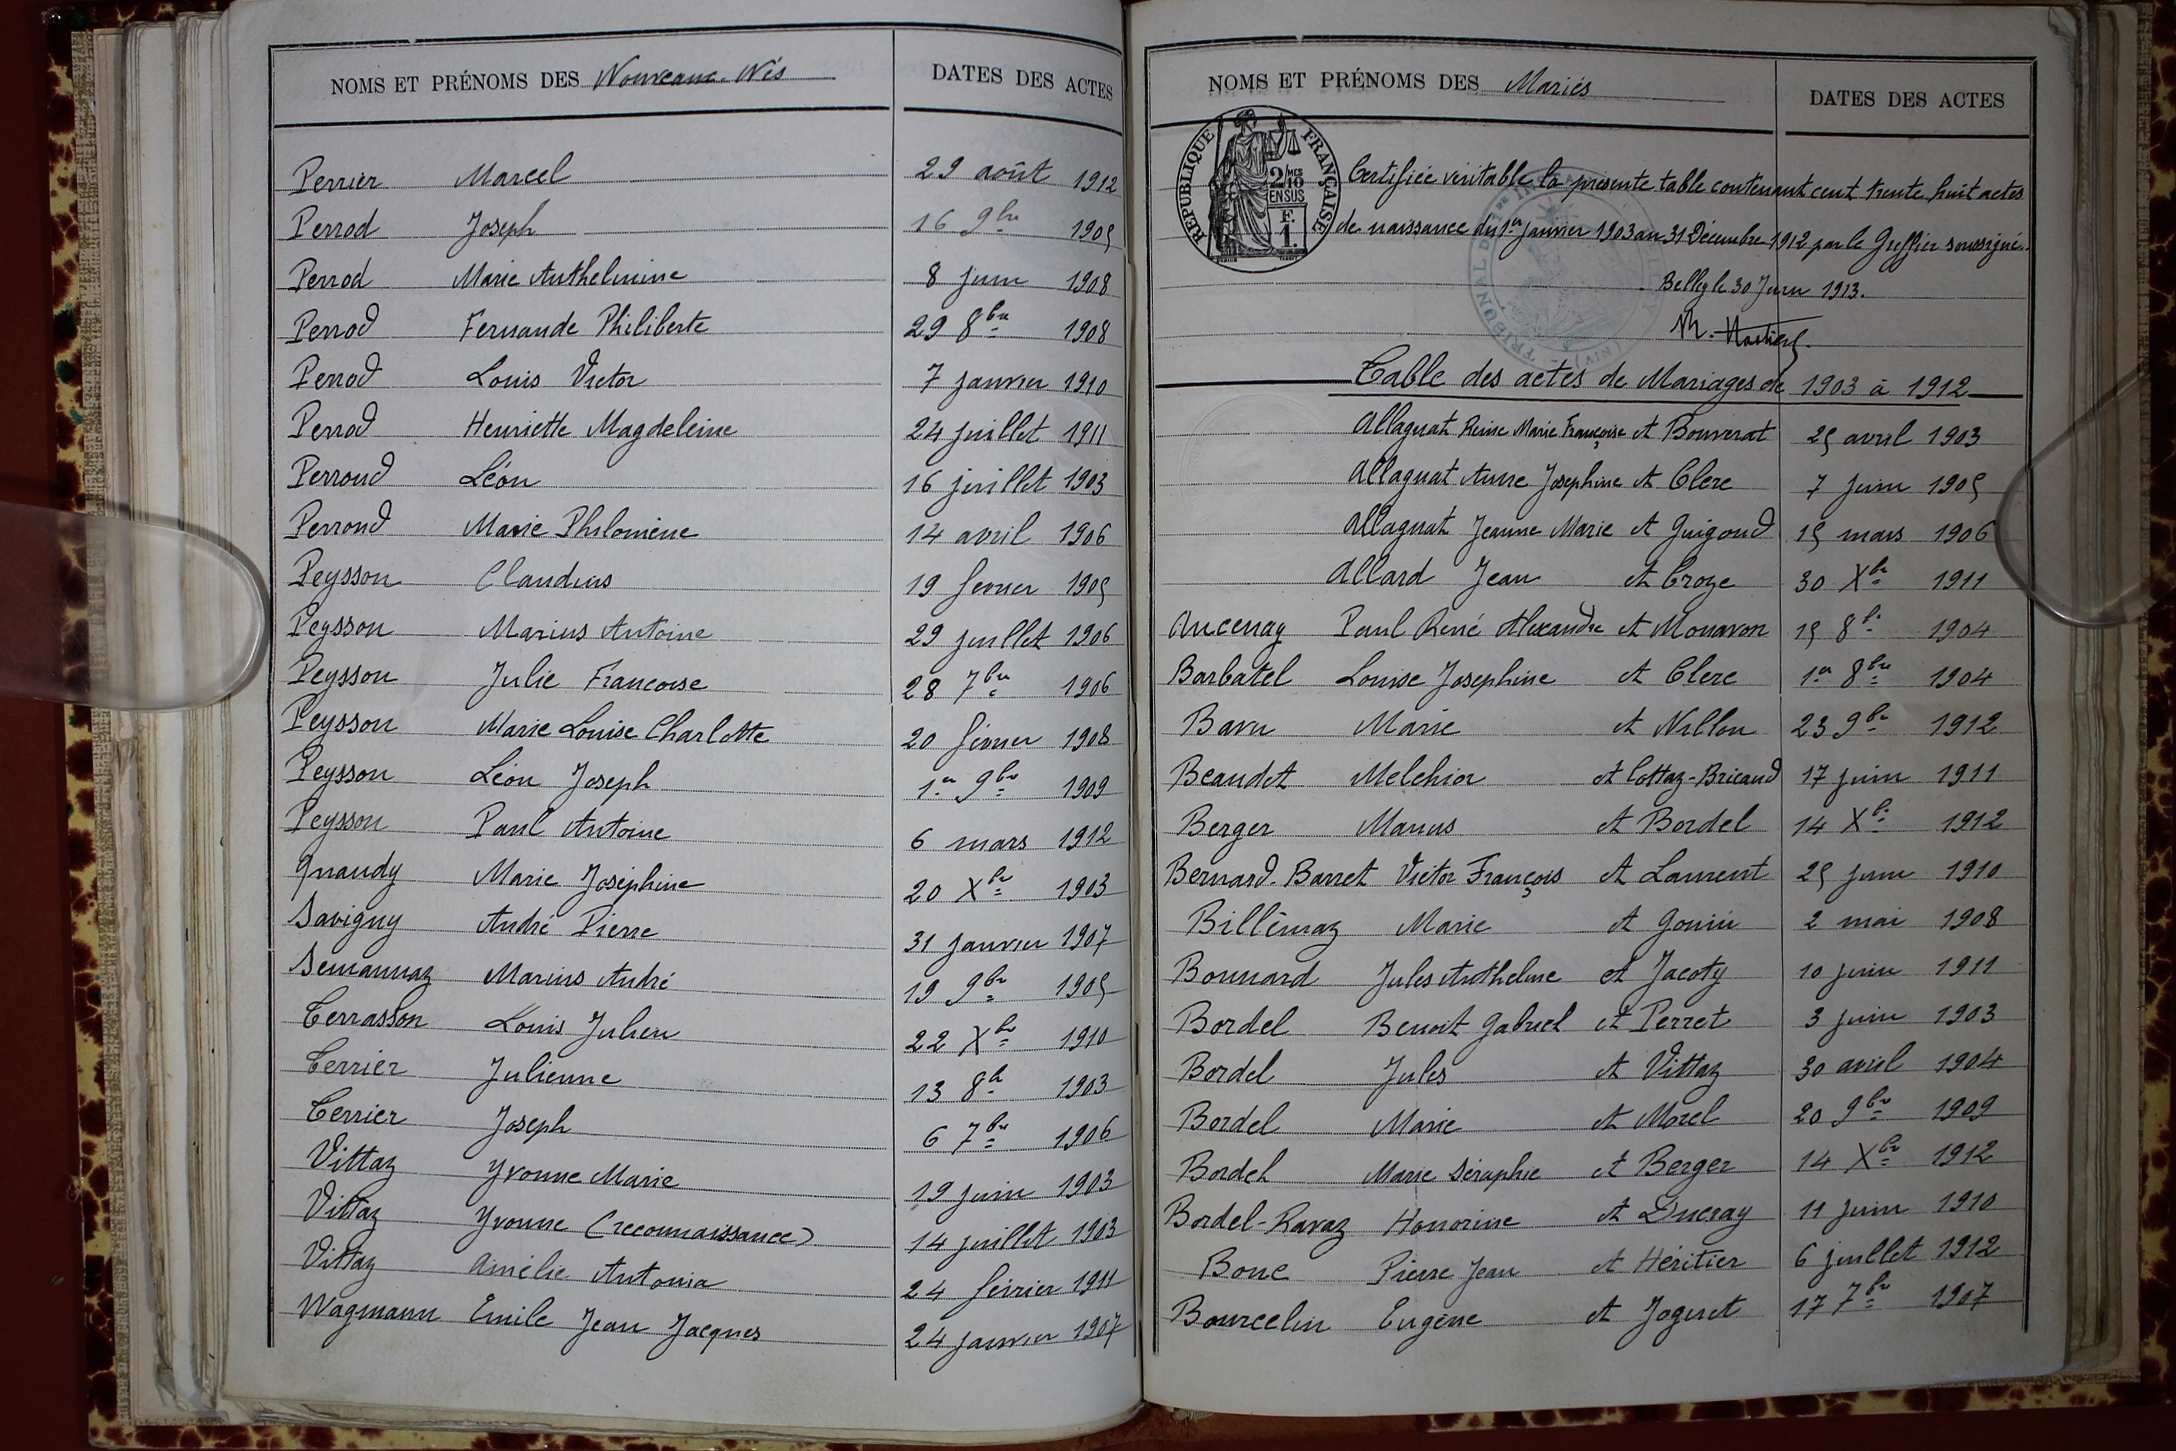 NOMS ET PRÉNOMS DES Nouveaux-Nés DATES DES ACTES
Perrier Marcel 29 août 1912
Perrod Joseph 16 9bre 1905
Perrod Marie Anthelmine 8 juin 1908
Perrod Fernande Philiberte 29 8bre 1908
Perrod Louis Victor 7 janvier 1910
Perrod Henriette Magdeleine 24 juillet 1911
Perroud Léon 16 juillet 1903
Perroud Marie Philomène 14 avril 1906
Peysson Claudius 19 fevrier 1905
Peysson Marius Antoine 29 juillet 1906
Peysson Julie Francoise 28 7bre 1906
Peysson Marie Louise Charlotte 20 février 1908
Peysson Léon Joseph 1er 9bre 1909
Peysson Paul Antoine 6 mars 1912
Quaudy Marie Joséphine 20 Xbre 1903
Savigny André Pierre 31 janvier 1907
Semannaz Marius André 19 9bre 1905
Terrasson Louis Julien 22 Xbre 1910
Terrier Julienne 13 8bre 1903
Terrier Joseph 6 7bre 1906
Vittaz Yvonne Marie 19 juin 1903
Vittaz Yvonne (reconnaissance) 14 juillet 1903
Vittaz Amélie Antonia 24 février 1911
Wagmann Emile Jean Jacques 24 janvier 1907
NOMS ET PRÉNOMS DES Mariés DATES DES ACTES
RÉPUBLIQUE FRANÇAISE
2/10 MES
EN SUS
F.
1.
Certifiée véritable la présente table contenant cent trente huit actes
de naissance du 1er janvier 1903 au 31 Décembre 1912 par le Greffier soussigné.
Belley le 30 Juin 1913.
TRIBUNAL
Table des actes de Mariages de 1903 à 1912
Allagnat Reine Marie Françoise et Bouverat 25 avril 1903
Allagnat Anne Josephine et Clerc 7 juin 1905
Allagnat Jeanne Marie et Guigoud 15 mars 1906
Allard Jean et Croze 30 Xbre 1911
Ancenay Paul René Alexandre et Monavon 15 8bre 1904
Barbatel Louise Josephine et Clerc 1er 8bre 1904
Bavu Marie et Nillon 23 9bre 1912
Beaudet Melchior et Cottaz-Bricaud 17 juin 1911
Berger Marius et Bordel 14 Xbre 1912
Bernard-Barret Victor François et Laurent 25 juin 1910
Billémaz Marie et Gouin 2 mai 1908
Bonnard Jules Anthelme et Jacoty 10 juin 1911
Bordel Benoit Gabriel et Perret 3 juin 1903
Bordel Jules et Vittaz 30 avril 1904
Bordel Marie et Morel 20 9bre 1909
Bordel Marie Séraphie et Berger 14 Xbre 1912
Bordel-Ravaz Honorine et Ducray 11 juin 1910
Bouc Pierre Jean et Héritier 6 juillet 1912
Bourcelin Eugène et Joguet 17 7bre 1907